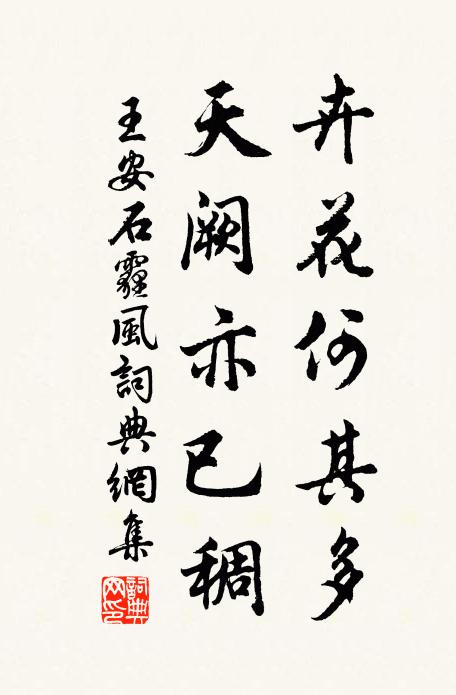 卉花何其多
天阙亦已稠
王安石霾風詞典網集
詞典网印